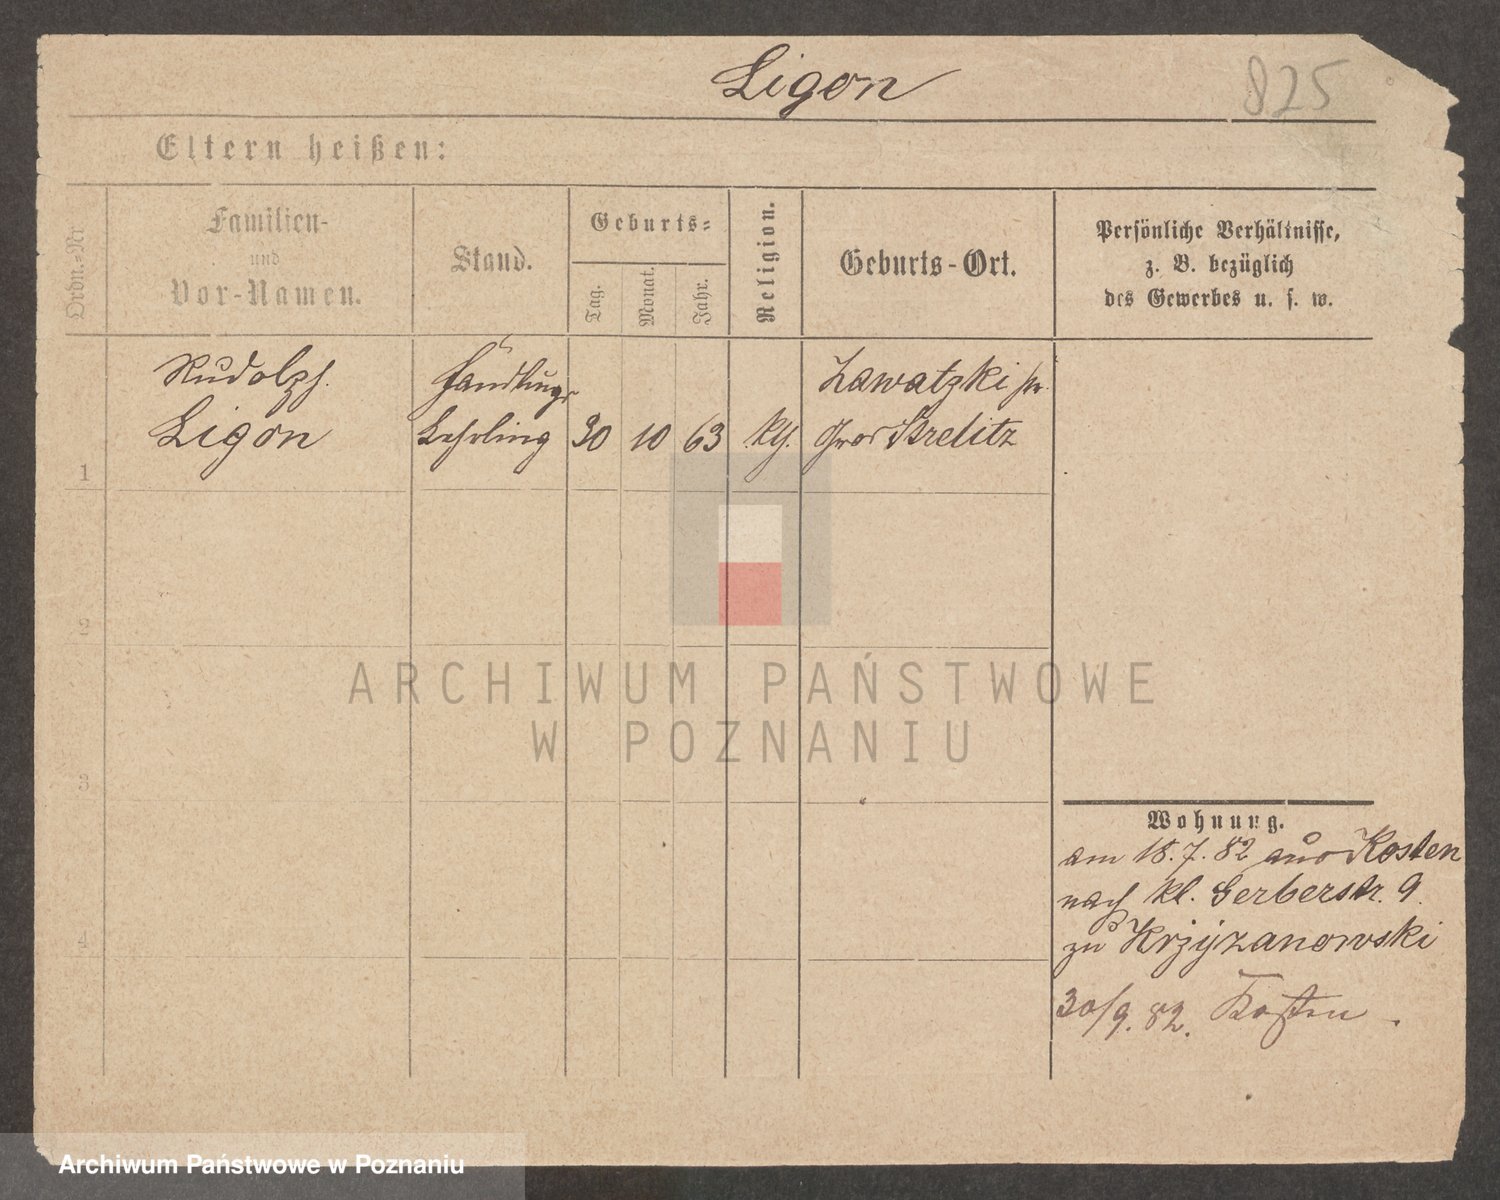 Ligon
825
Eltern heißen:
Ordn.-Nr
Familien-
und
Vor-Namen.
Stand.
Geburts-
Tag.
Monat.
Jahr.
Religion.
Geburts-Ort.
Persönliche Verhältnisse,
z. B. bezüglich
des Gewerbes u. s. w.
Rudolph
Ligon
Handlungs
Lehrling
30
10
63
kth.
Zawatzki
Gros Strelitz
1
2
3
4
Wohnung.
am 18.7.82 aus Kosten
nach kl. Gerberstr. 9.
zu Krzyzanowski
30/9. 82. Kosten.
ARCHIWUM PAŃSTWOWE
W POZNANIU
Archiwum Państwowe w Poznaniu